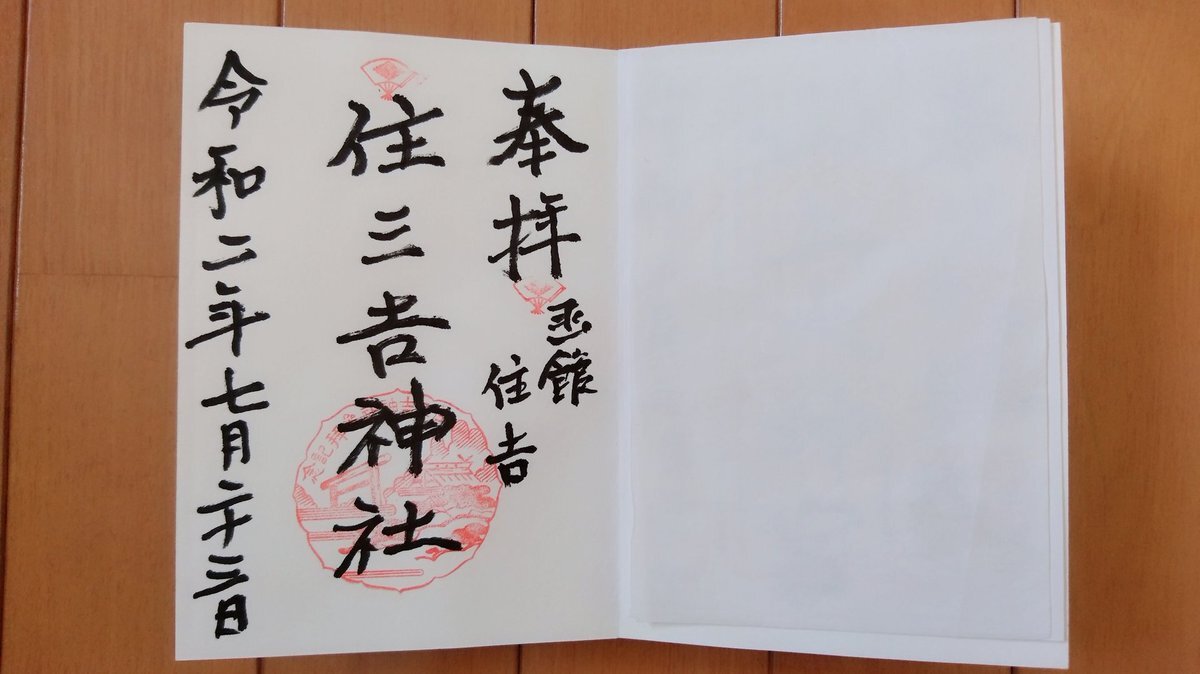 奉拝
函館
住吉
住三吉神社
拝記念
令和二年七月二十三日